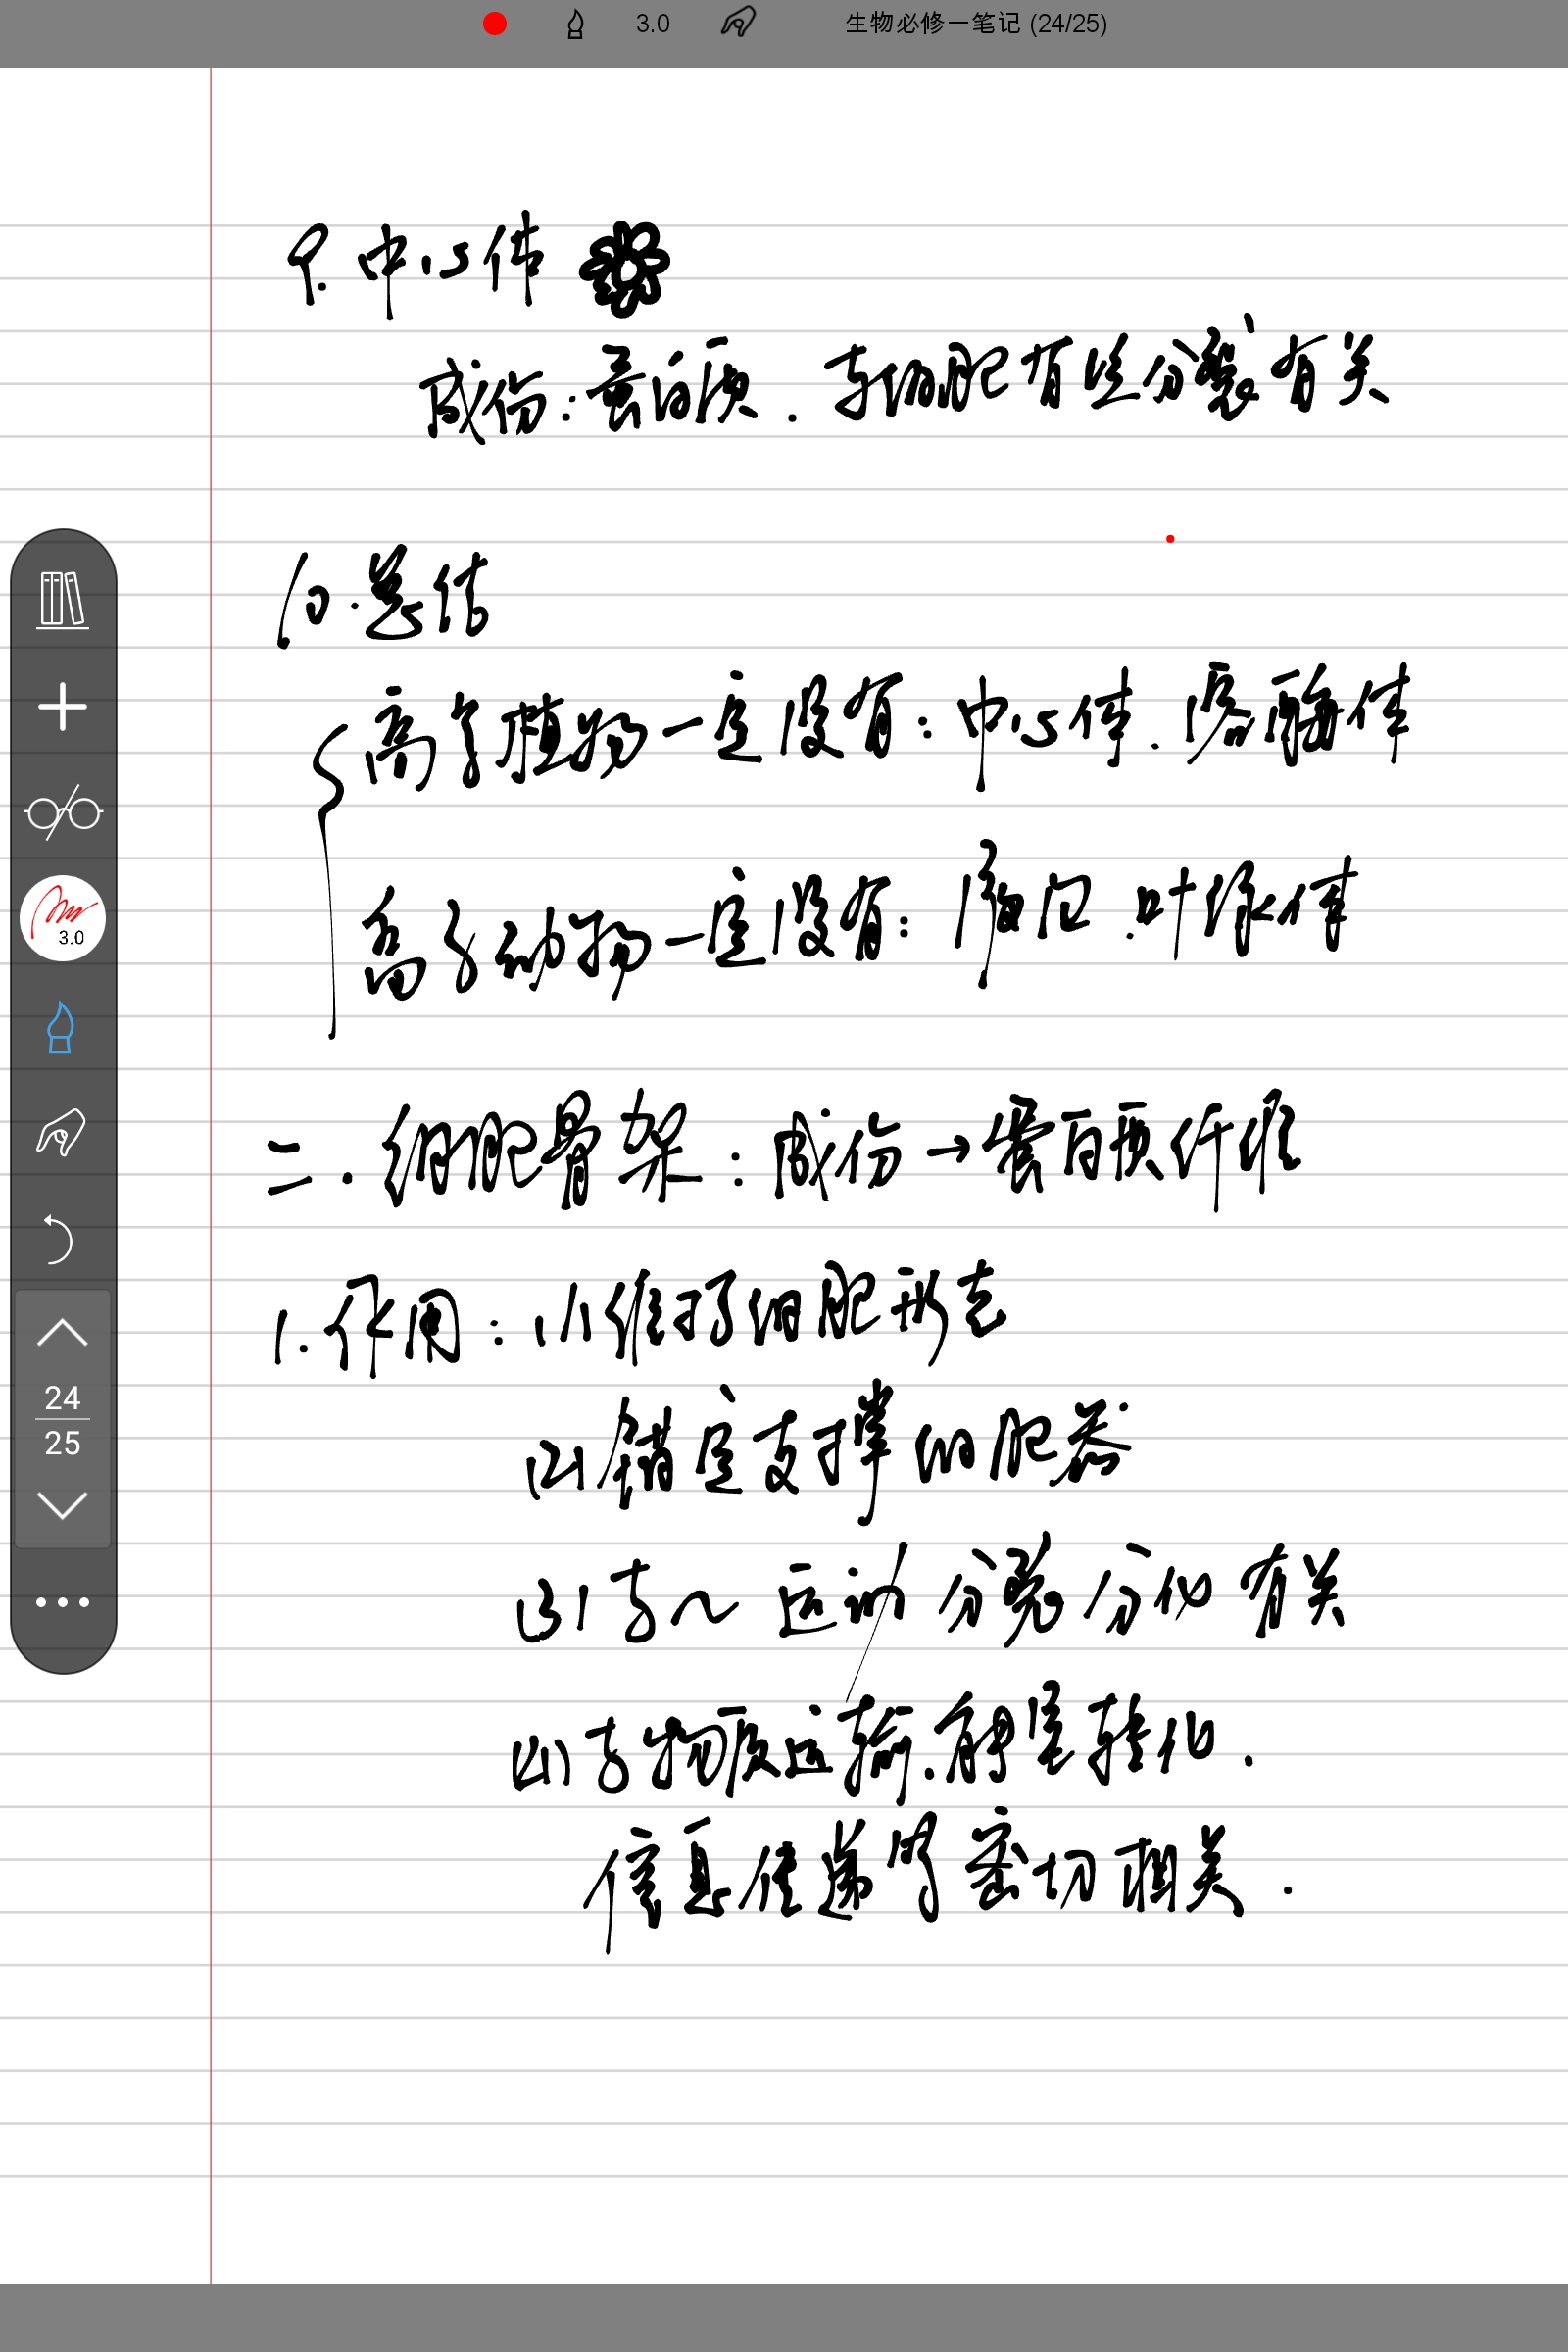 3.0 生物必修一笔记 (24/25)
9. 中心体
成份：蛋白质. 与细胞有丝分裂有关
10. 总结
高等植物一定没有：中心体. 溶酶体
高等动物一定没有：液泡. 叶绿体
二. 细胞骨架：成份→蛋白质纤维
1. 作用：(1)维持了细胞形态
(2)锚定支撑细胞器
(3)与~运动 分裂 分化 有关
(4)与物质运输. 能量转化.
信息传递等密切相关.
3.0
24
25